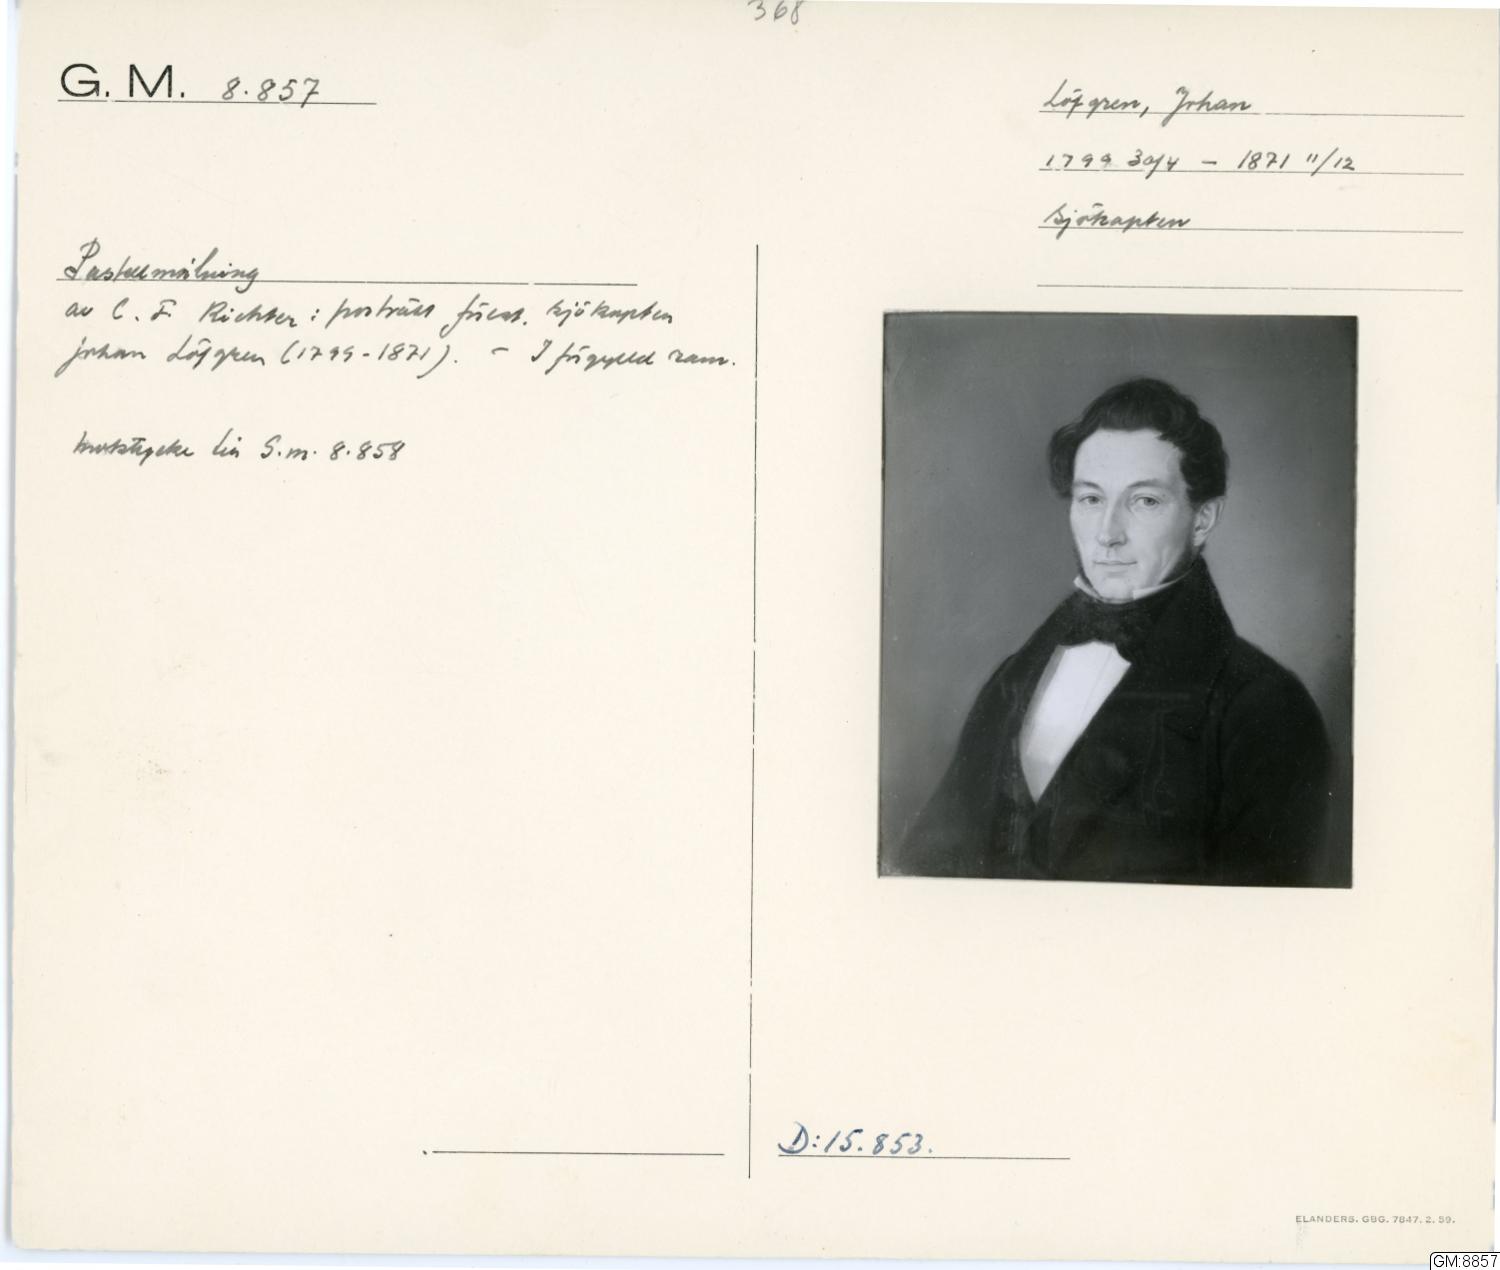 368
G. M. 8.857
Löfgren, Johan
1799 30/4 – 1871 11/12
Sjökapten
Pastellmålning
av C. F. Richter: porträtt förest. sjökapten
Johan Löfgren (1799-1871). – I förgylld ram.
Motstycke till G.M. 8.858
D:15.853.
ELANDERS. GBG. 7847. 2. 59.
GM:8857